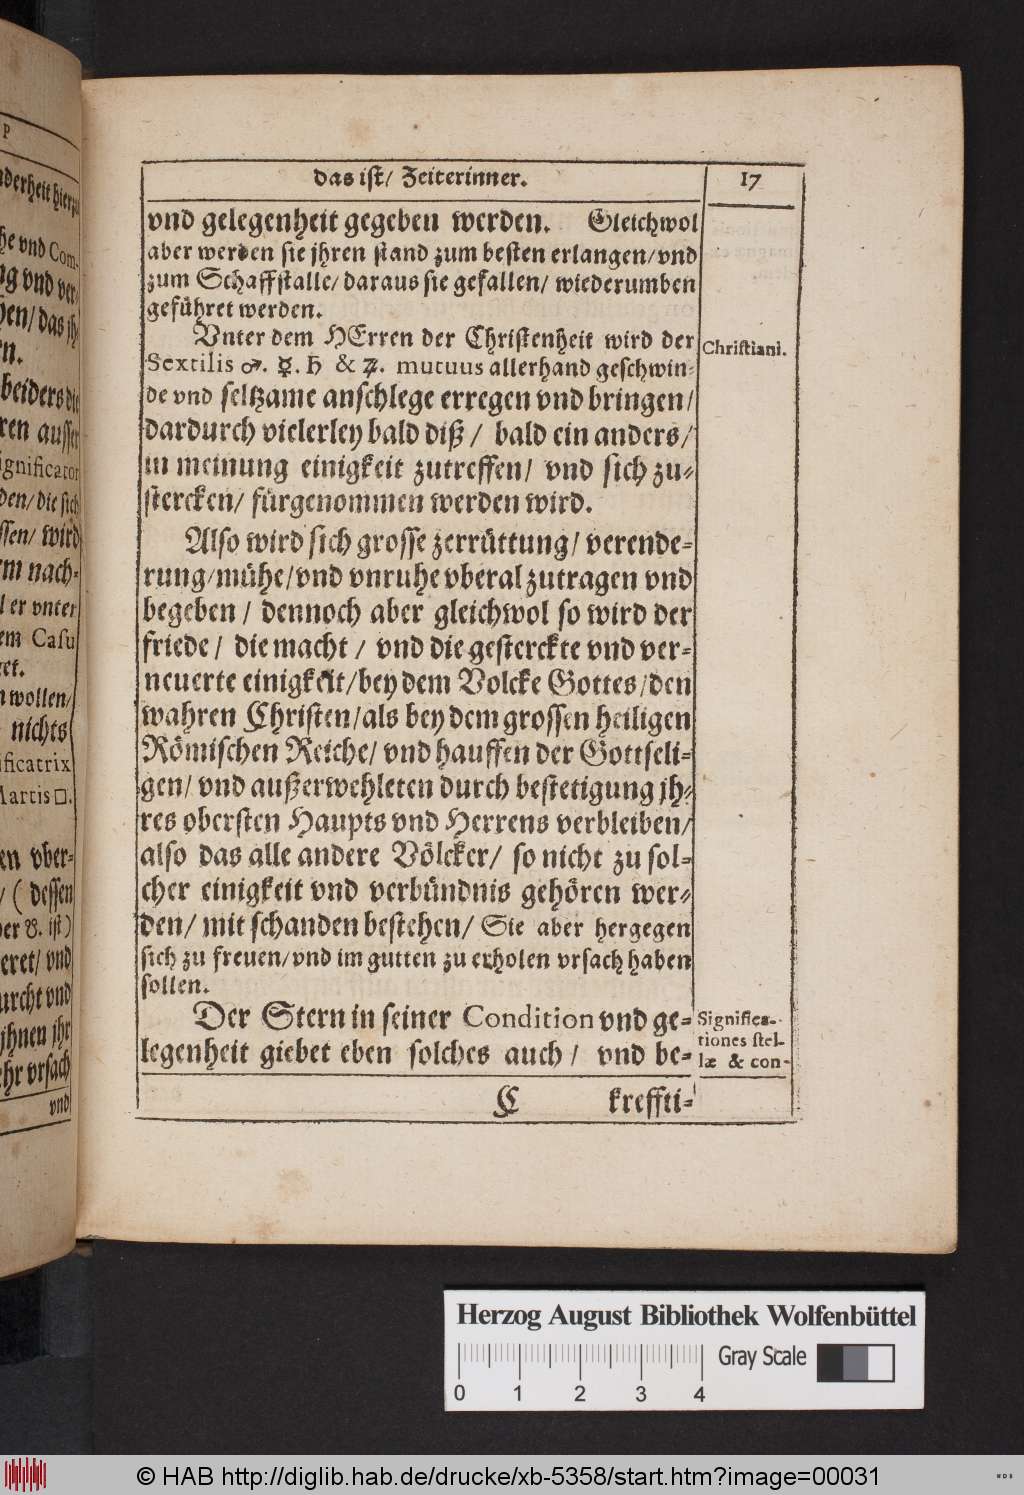 das ist/ Zeiterinner.
17
vnd gelegenheit gegeben werden. Gleichwol
aber werden sie jhren stand zum besten erlangen/vnd
zum Schaffstalle/ daraus sie gefallen/ wiederumben
geführet werden.
Vnter dem HErren der Christenheit wird der
Christiani.
Sextilis ♂. ☿. ♄ & ♃. mutuus allerhand geschwin-
de vnd seltzame anschlege erregen vnd bringen/
dardurch vielerley bald diß / bald ein anders/
in meinung einigkeit zutreffen/ vnd sich zu-
stercken/ fürgenommen werden wird.
Also wird sich grosse zerrüttung/ verende-
rung/mühe/vnd vnruhe vberal zutragen vnd
begeben / dennoch aber gleichwol so wird der
friede / die macht / vnd die gesterckte vnd ver-
neuerte einigkeit/bey dem Volcke Gottes/den
wahren Christen/als bey dem grossen heiligen
Römischen Reiche/ vnd hauffen der Gottseli-
gen/ vnd außerwehleten durch bestetigung jh-
res obersten Haupts vnd Herrens verbleiben/
also das alle andere Völcker/ so nicht zu sol-
cher einigkeit vnd verbündnis gehören wer-
den/ mit schanden bestehen/ Sie aber hergegen
sich zu freuen/vnd im gutten zu erholen vrsach haben
sollen.
Der Stern in seiner Condition vnd ge-
legenheit giebet eben solches auch / vnd be-
Significa-
tiones stel-
læ & con-
C
kreffti-
P
nderheit hierzu
he vnd Com-
ng vnd ver-
hen/ das jh
n.
beiders die
ren ausser
ignificator
den/ die sich
ssen/ wird
em nach-
l er vnter
em Casu
et.
n wollen/
nichts
ificatrix
Martis □.
en vber-
/ ( dessen
er ♉. ist)
eret/ vnd
urcht vnd
jhnen jhr
ehr vrsach
vnd
Herzog August Bibliothek Wolfenbüttel
Gray Scale
0 1 2 3 4
© HAB http://diglib.hab.de/drucke/xb-5358/start.htm?image=00031
WDB